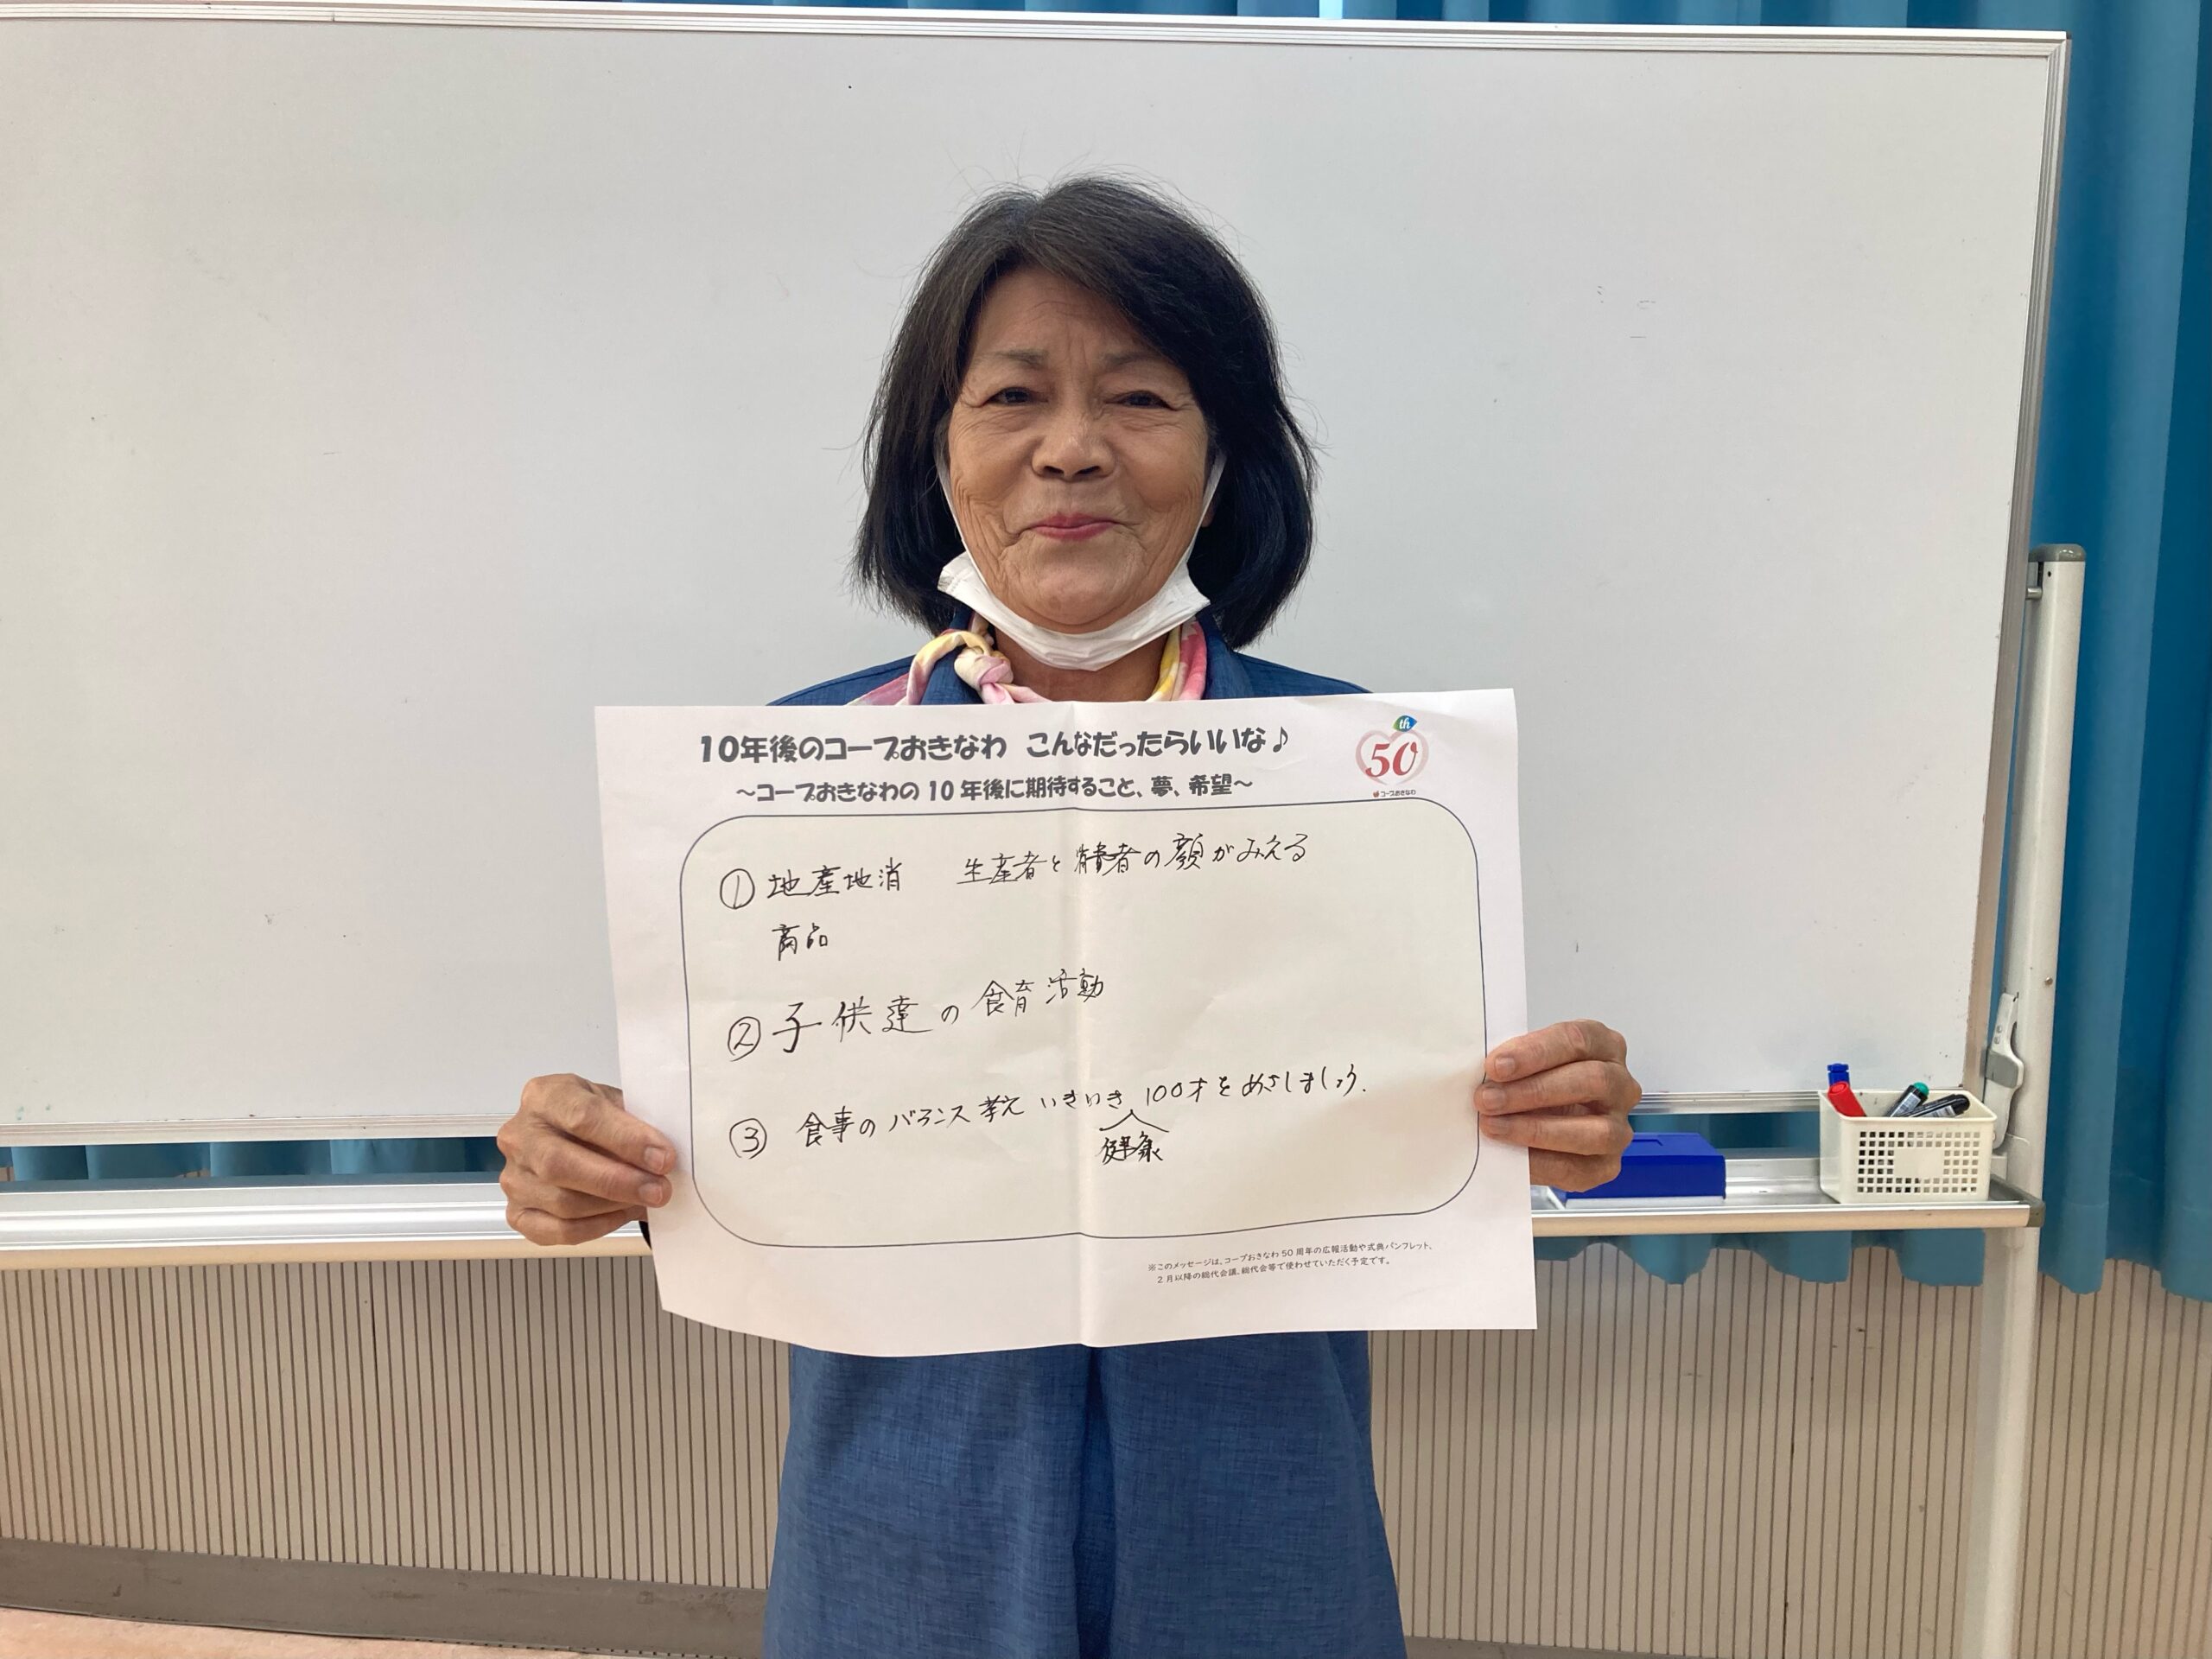 10年後のコープおきなわ こんなだったらいいな♪
th
50
コープおきなわ
～コープおきなわの10年後に期待すること、夢、希望～
① 地産地消 生産者と消費者の顔がみえる
商品
② 子供達の食育活動
③ 食事のバランス考え いきいき 100才をめざしましょう.
健康
※このメッセージは、コープおきなわ50周年の広報活動や式典パンフレット、
2月以降の総代会議、総代会等で使わせていただく予定です。